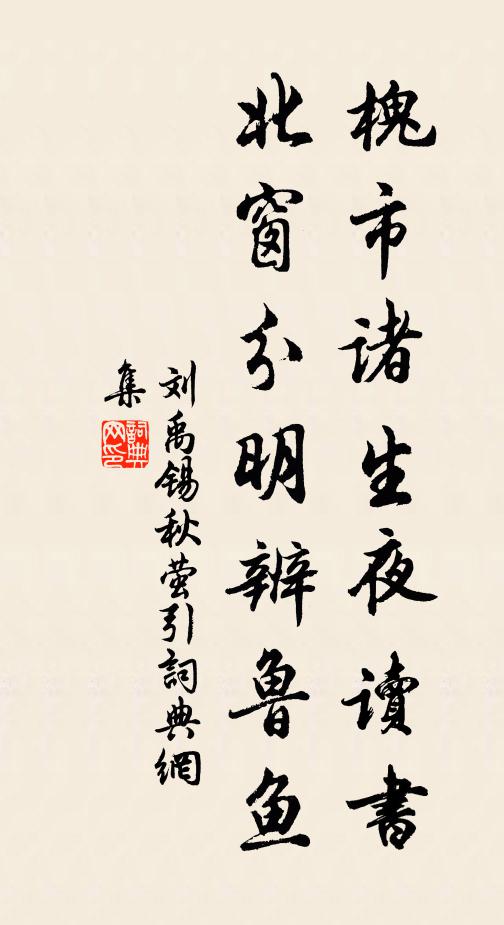 槐市诸生夜讀書
北窗分明辨魯魚
刘禹锡秋萤引詞典網
集
詞典網印